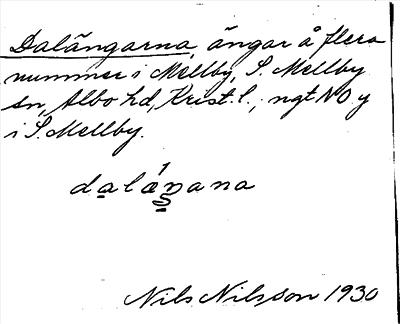 Dalängarna, ängar å flera
nummer i Mellby, S. Mellby
sn, Albo hd, Krist. l., ngt NO y
i S. Mellby.
dalä́ŋana
Nils Nilsson 1930